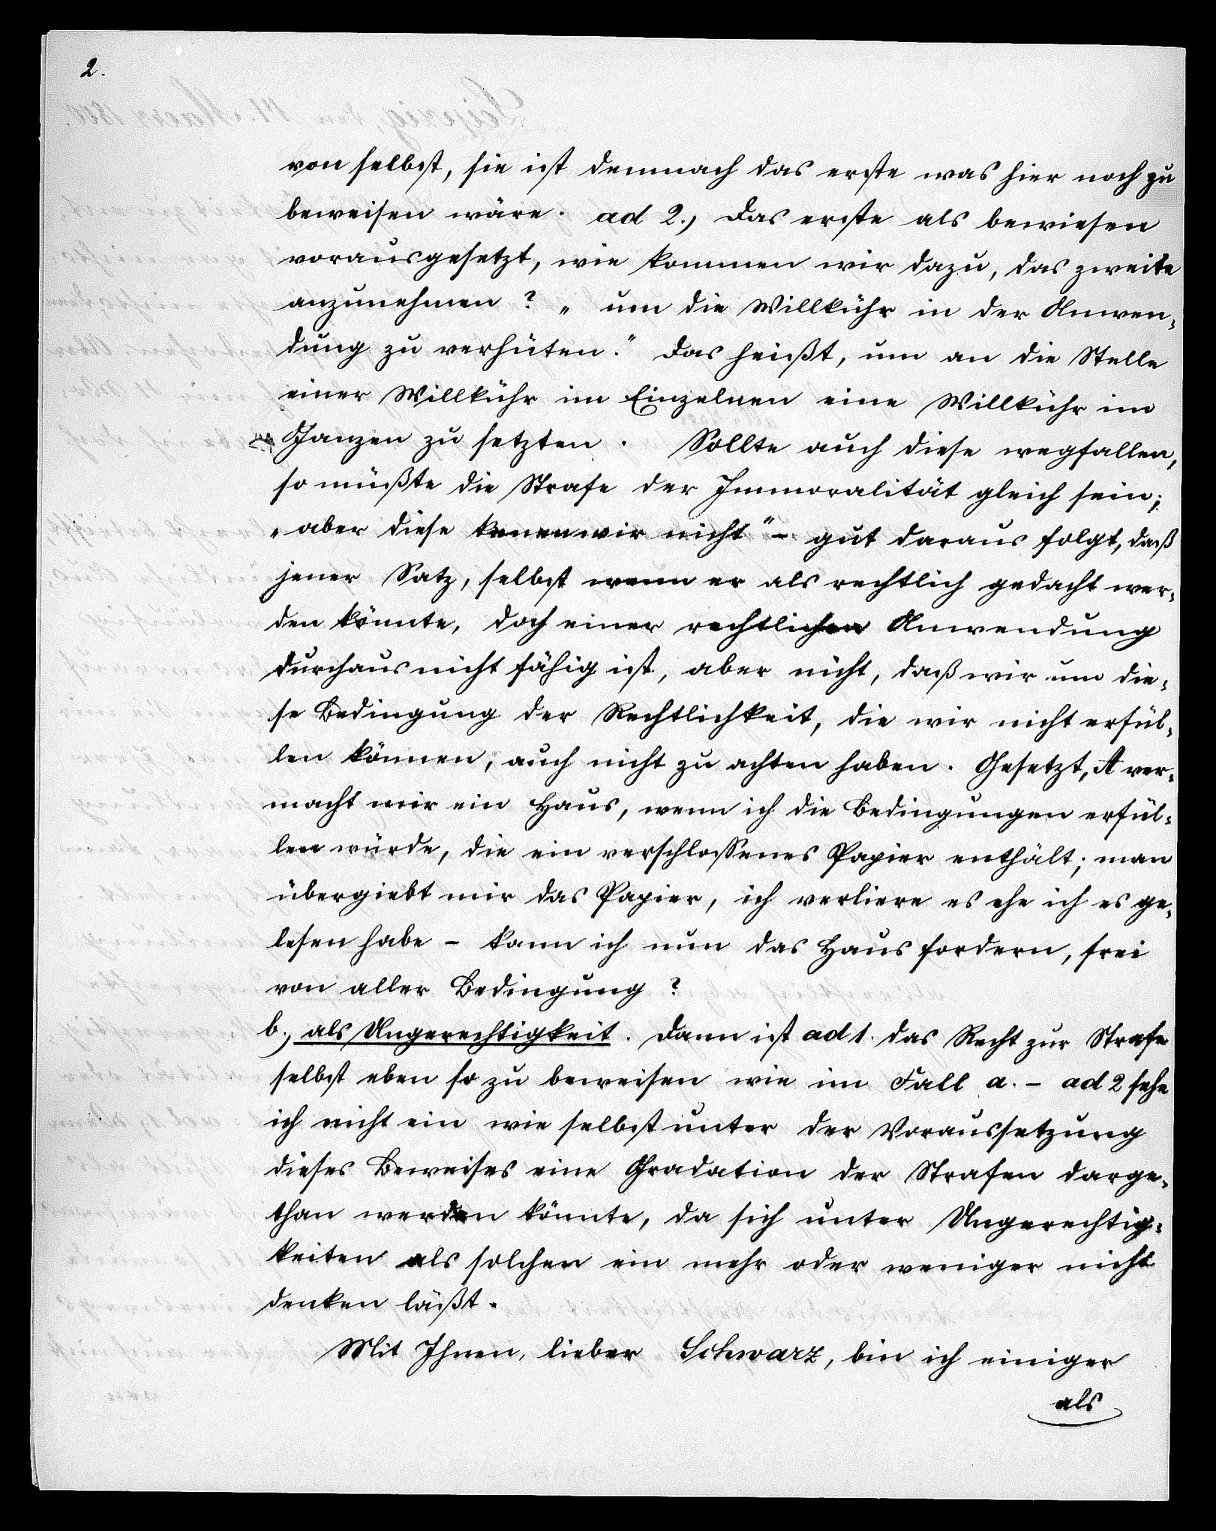 2.
von selbst, sie ist demnach das erste was hier noch zu
beweisen wäre. ad 2., das erste als bewiesen
vorausgesetzt, wie kommen wir dazu, das zweite
anzunehmen? „ um die Willkühr in der Anwen-
dung zu verhüten.“ das heißt, um an die Stelle
einer Willkühr im Einzelnen eine Willkühr im
Ganzen zu setzten. Sollte auch diese wegfallen,
so müßte die Strafe der Immoralität gleich sein;
„aber diese kenen wir nicht“ – gut daraus folgt, daß
jener Satz, selbst wenn er als rechtlich gedacht wer-
den könnte, doch einer rechtlichen Anwendung
durchaus nicht fähig ist, aber nicht, daß wir um die-
se Bedingung der Rechtlichkeit, die wir nicht erfül-
len können, auch nicht zu achten haben. Gesetzt, A ver-
macht mir ein Haus, wenn ich die Bedingungen erfül-
len würde, die ein verschlossenes Papier enthält; man
übergiebt mir das Papier, ich verliere es ehe ich es ge-
lesen habe – kann ich nun das Haus fordern, frei
von aller Bedingung?
b., als Ungerechtigkeit. Dann ist ad 1. das Recht zur Strafe
selbst eben so zu beweisen wie im Fall a. – ad 2 sehe
ich nicht ein wie selbst unter der Voraussetzung
dieses Beweises eine Gradation der Strafen darge-
than werden könnte, da sich unter Ungerechtig-
keiten als solchen ein mehr oder weniger nicht
denken läßt.
Mit Ihnen, lieber Schwarz, bin ich einiger
als